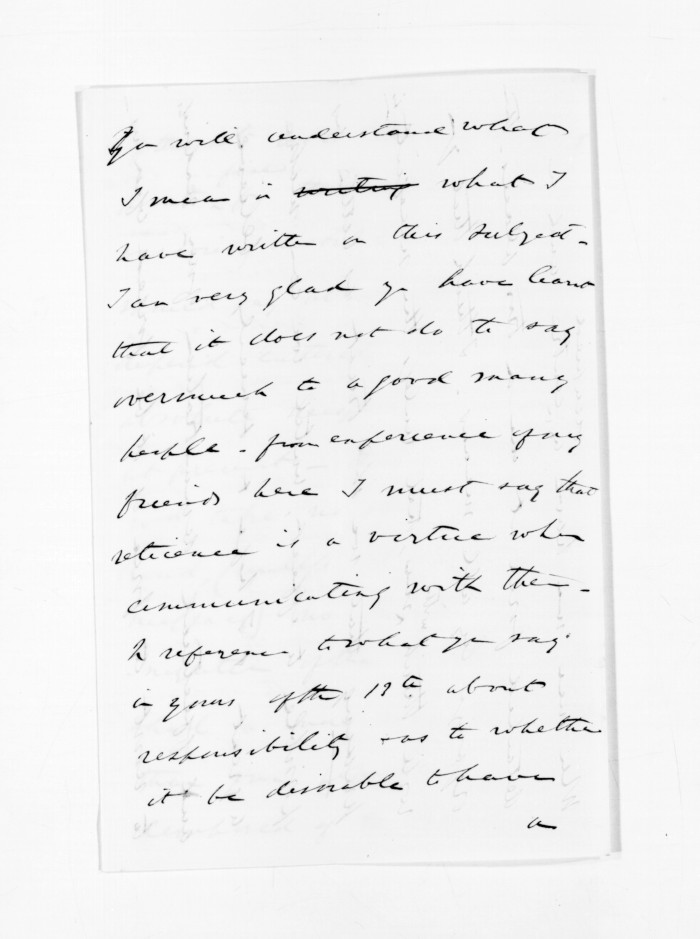 You will understand what
I mean in writing what I
have written on this subject -
I am very glad you have learnt
that it does not do to say
overmuch to a good many
people - from experience of my
friends here I must say that
reticence is a virtue when
communicating with them -
In reference to what you say
in yours of the 19th about
responsibility & as to whether
it be desirable to have
a